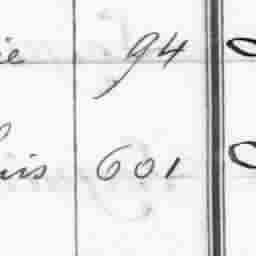 ie 94
is 601